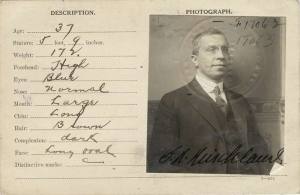 DESCRIPTION.
Age: 37
Stature: 5 feet, 9 inches.
Weight: 172
Forehead: High
Eyes: Blue
Nose: Normal
Mouth: Large
Chin: Long
Hair: Brown
Complexion: dark
Face: Long oval
Distinctive marks:
PHOTOGRAPH.